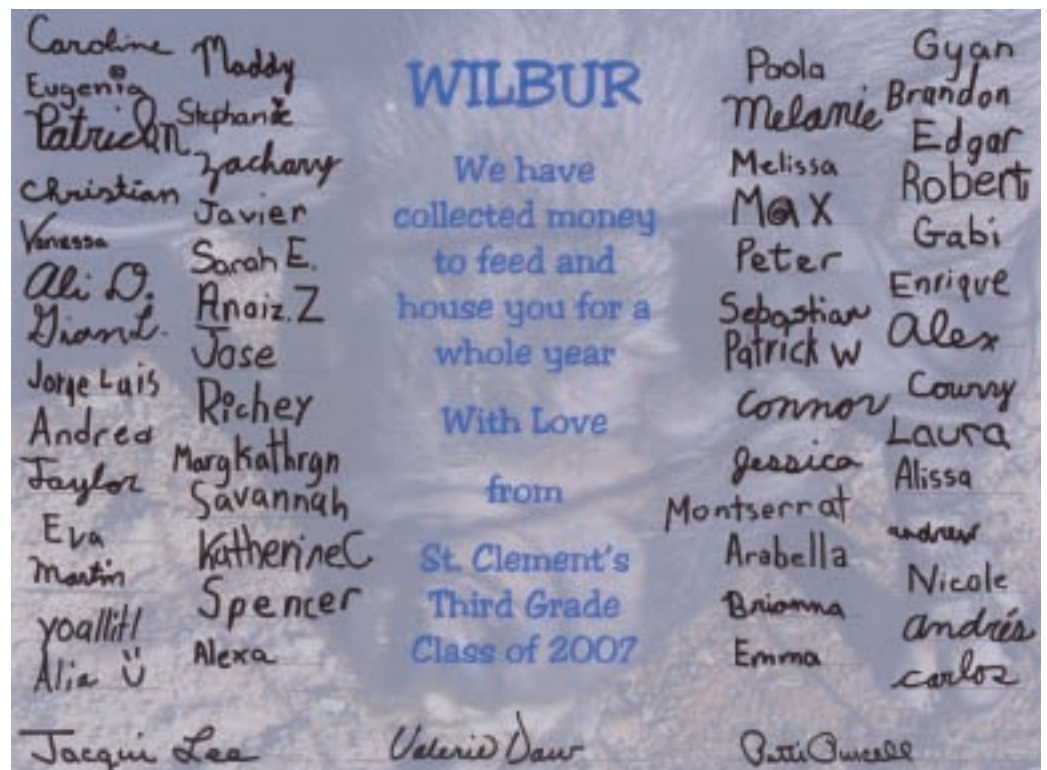 Caroline
Eugenia
Patrick N
Christian
Vanessa
Ali D.
Gian L.
Jorge Luis
Andrea
Taylor
Eva
Martin
yoallitl
Alia
Maddy
Stephanie
Zachary
Javier
Sarah E.
Anaiz. Z
Jose
Richey
Mary Kathryn
Savannah
Katherine C
Spencer
Alexa
WILBUR
We have
collected money
to feed and
house you for a
whole year
With Love
from
St. Clement's
Third Grade
Class of 2007
Paola
Melanie
Melissa
Max
Peter
Sebastian
Patrick W
Connor
Jessica
Montserrat
Arabella
Brianna
Emma
Gyan
Brandon
Edgar
Robert
Gabi
Enrique
Alex
Laura
Alissa
andrew
Nicole
andrés
carlos
Jacqui Lee
Valerie Daur
Patti Purcell